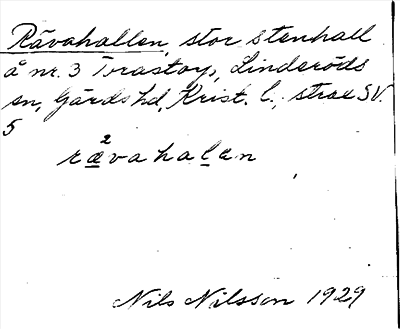 Rävahallen, stor stenhall
å nr. 3 Torastorp, Linderöds
sn, Gärds hd, Krist. l., strax SV.
5
rä²vahalen
Nils Nilsson 1929